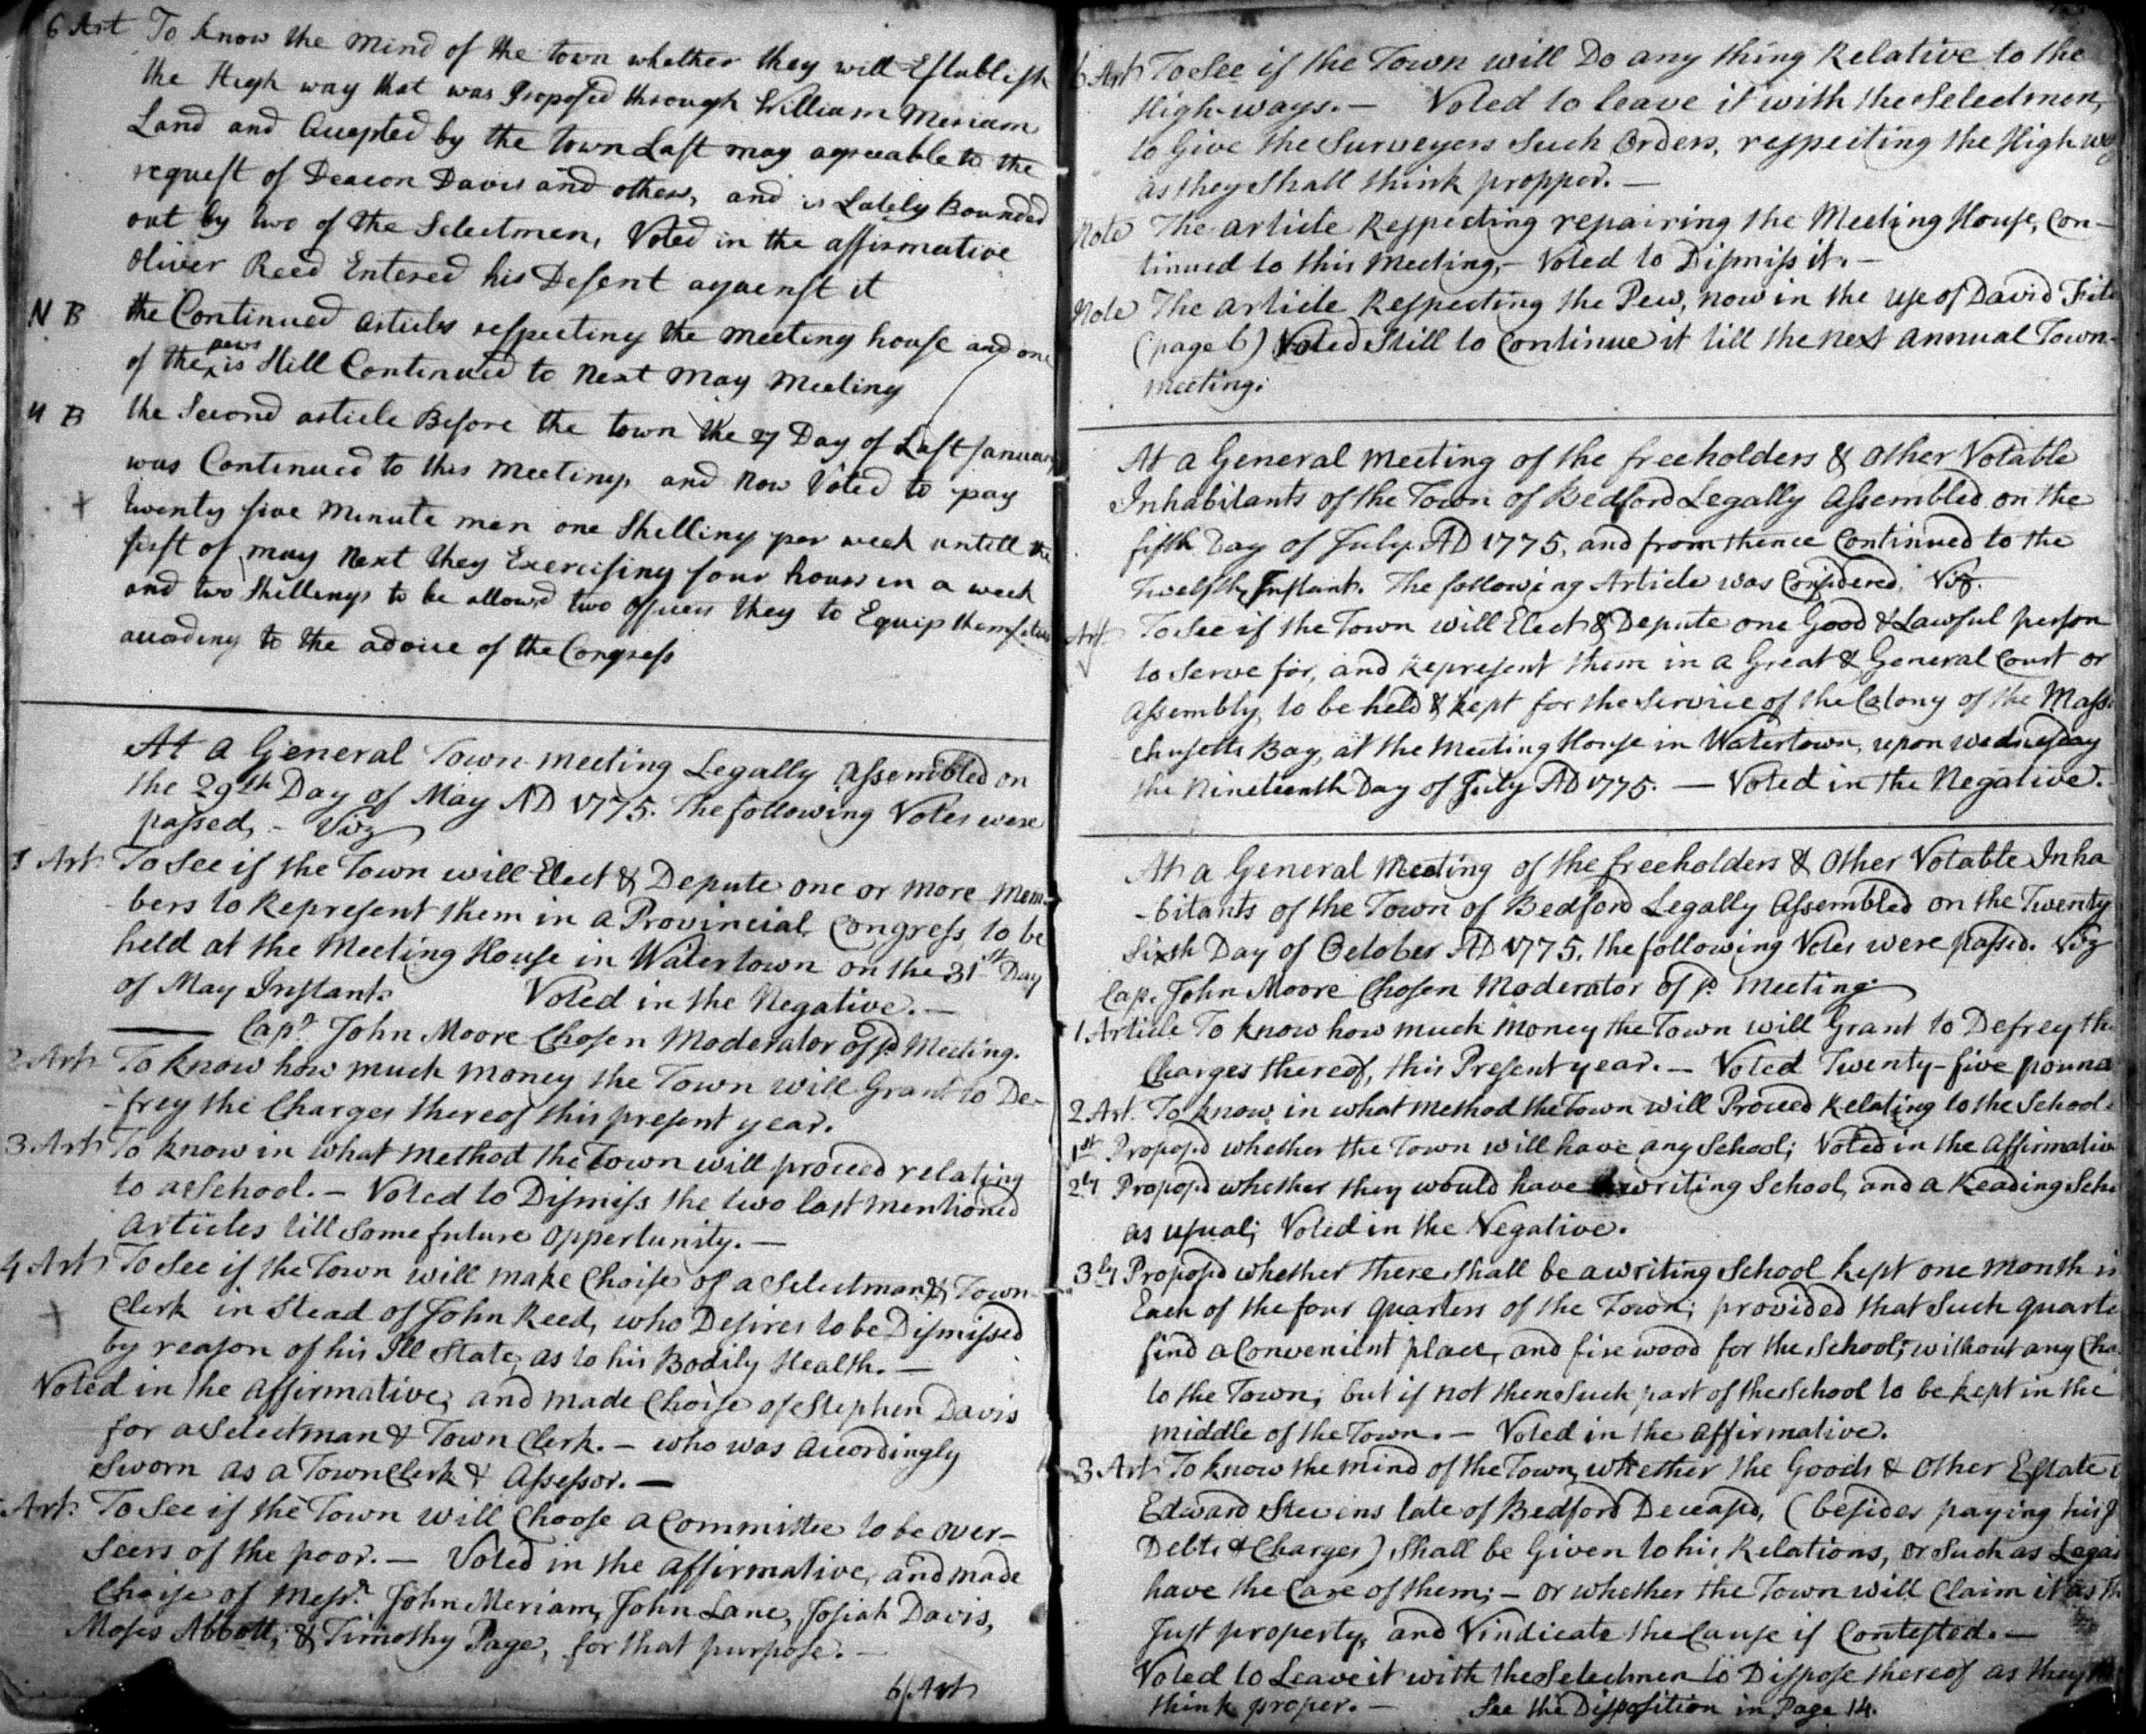 6 Art To know the mind of the town whether they will Establish
the High way that was Proposed through William Meriam
Land and Accepted by the town Last may agreeable to the
request of Deacon Davis and others, and is Lately Bounded
out by two of the Selectmen, Voted in the affirmative
Oliver Reed Entered his Desent against it
N B the Continued articles respecting the meeting house and one
of the pews is Still Continued to Next May Meeting
N B the Second article Before the town the 27 Day of Last January
was Continued to this meeting, and Now Voted to pay
twenty five minute men one Shelling per week untell the
first of may Next they Exercising four hours in a week
and two Shillings to be allowed two officers they to Equip themselves
according to the advice of the Congress
At a General Town meeting Legally Assembled on
the 29th Day of May AD 1775. The following Votes were
passed, - Viz
1 Art To See if the Town will Elect & Depute one or more Mem-
bers to Represent them in a Provincial Congress to be
held at the Meeting House in Watertown on the 31st Day
of May Instant. Voted in the Negative. —
Capt. John Moore Chosen Moderator of sd. Meeting.
2 Art To know how much money the Town will Grant to De-
-frey the Charges thereof this present year.
3 Art To know in what Method the Town will proceed relating
to a School. — Voted to Dismiss the two last mentioned
Articles till Some future Oppertunity. —
4 Art To See if the Town will make Choise of a Selectman & Town
Clerk in Stead of John Reed, who Desires to be Dismissed
by reason of his Ill State, as to his Bodily Health. —
Voted in the Affirmative; and made Choise of Stephen Davis
for a Selectman & Town Clerk. — who was Accordingly
Sworn as a Town Clerk & Assessor. —
Art. To See if the Town will Choose a Committee to be Over-
Seers of the poor. — Voted in the affirmative, and made
Choise of Messrs. John Meriam, John Lane, Josiah Davis,
Moses Abbott, & Timothy Page, for that purpose. —
6 Art
6 Art To See if the Town will Do any thing Relative to the
High-ways. — Voted to leave it with the Selectmen,
to Give the Surveyers Such Orders, respecting the High way
as they Shall think propper. —
Note The article Respecting repairing the Meeting House, Con-
tinued to this Meeting, — Voted to Dismiss it. —
Note The article Respecting the Pew, now in the use of David
(page 6) Voted Still to Continue it till the next Annual Town-
meeting.
At a General Meeting of the freeholders & Other Votable
Inhabitants of the Town of Bedford Legally Assembled on the
fifth Day of July AD 1775, and from thence Continued to the
Twelfth Instant. The following Article was Considered. Viz.
Art To See if the Town will Elect & Depute one Good & Lawful person
to Serve for, and Represent them in a Great & General Court or
Assembly, to be held & Kept for the Service of the Colony of the Massa
chusetts Bay, at the Meeting House in Watertown, upon Wednesday
the Nineteenth Day of July AD 1775. — Voted in the Negative.
At a General Meeting of the freeholders & Other Votable Inha
-bitants of the Town of Bedford Legally Assembled on the Twenty
Sixth Day of October AD 1775, the following Votes were passed. Viz
Cap. John Moore Chosen Moderator of sd. Meeting.
1. Article To know how much Money the Town will Grant to Defrey the
Charges thereof, this Present year. — Voted Twenty-five pound
2 Art. To know in what method the Town will Proceed Relating to the School.
1st Propos'd whether the Town will have any School; Voted in the Affirmative
2ly Propos'd whether they would have a writing School, and a Reading Scho
as usual; Voted in the Negative.
3ly Propos'd whether there Shall be a writing School kept one Month in
Each of the four quarters of the Town; provided that Such quarte
find a Convenient place, and fire wood for the School; without any Cha
to the Town; but if not then Such part of the School to be kept in the
middle of the Town. — Voted in the Affirmative.
3 Art To know the mind of the Town, whether the Goods & Other Estate
Edward Stevens late of Bedford Deceas'd, (besides paying his
Debts & Charges) Shall be Given to his Relations, or Such as
have the Care of them; — or whether the Town will Claim it as
Just property, and Vindicate the Cause if Contested. —
Voted to Leave it with the Selectmen to Dispose thereof as they
think proper. — See the Disposition in Page 14.